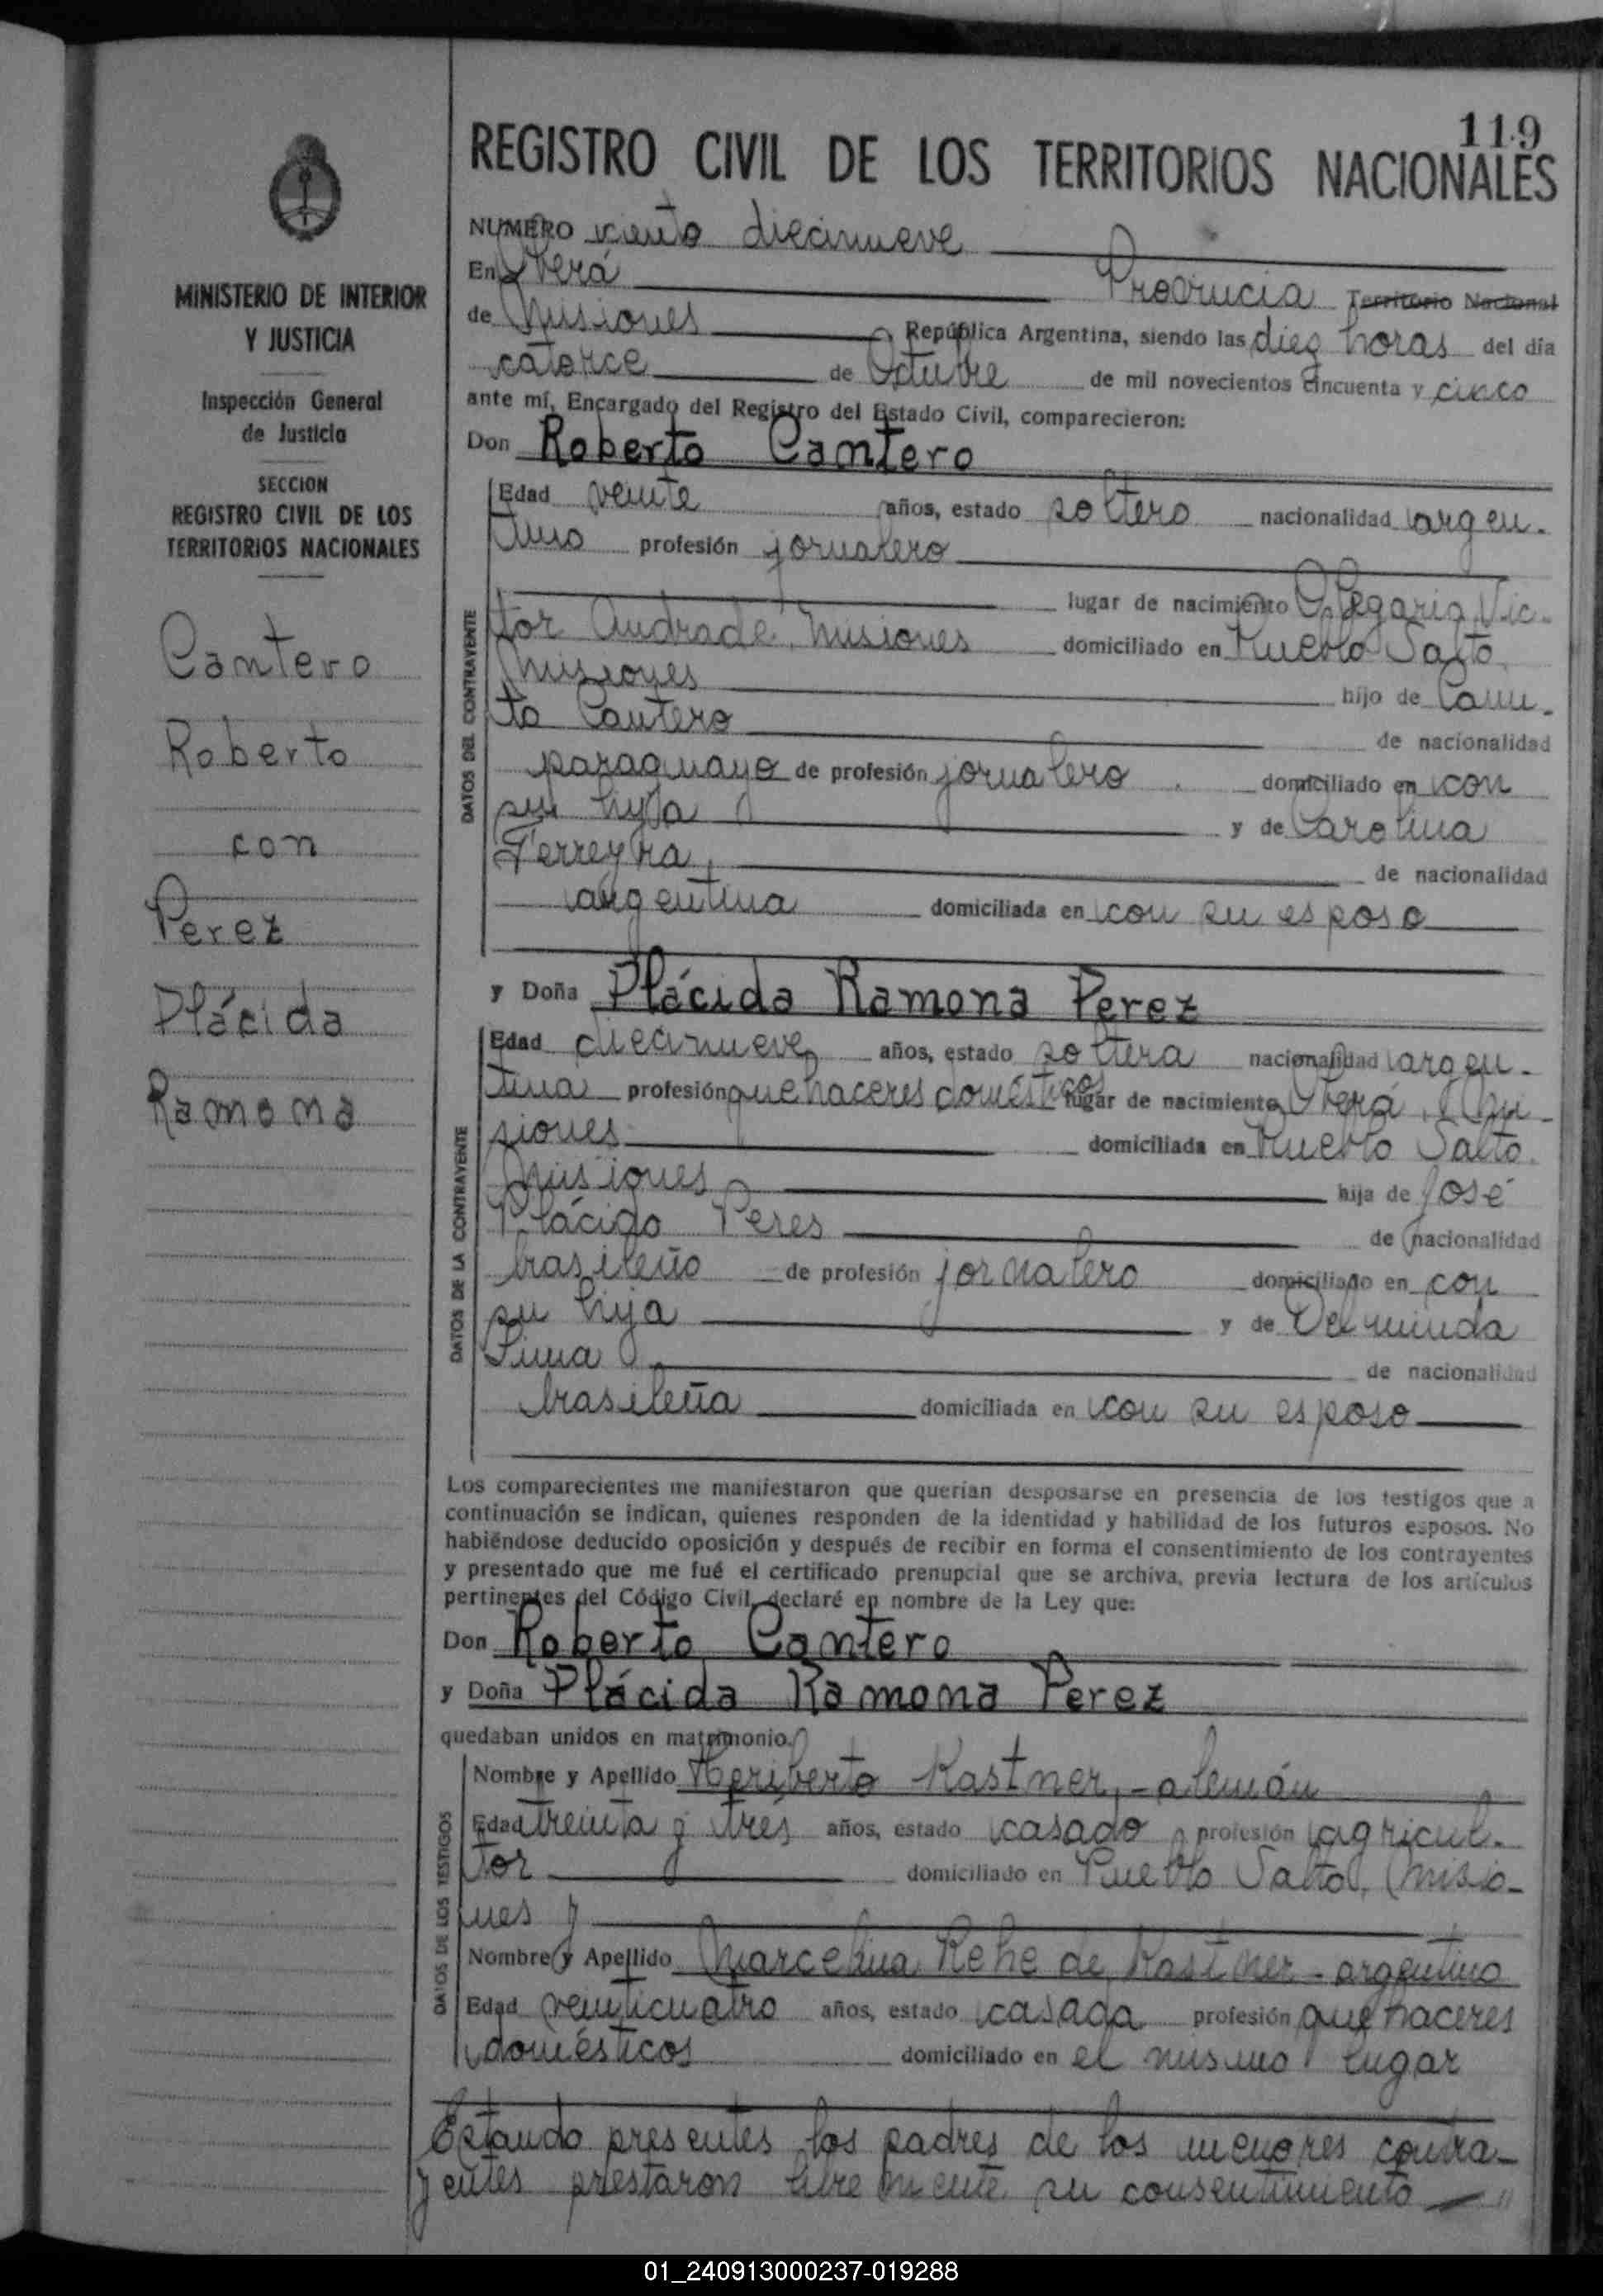 119
REGISTRO CIVIL DE LOS TERRITORIOS NACIONALES
MINISTERIO DE INTERIOR
Y JUSTICIA
Inspección General
de Justicia
SECCION
REGISTRO CIVIL DE LOS
TERRITORIOS NACIONALES
Cantero
Roberto
con
Perez
Plácida
Ramona
NUMERO ciento diecinueve
En Oberá Provincia Territorio Nacional
de Misiones República Argentina, siendo las diez horas del día
catorce de Octubre de mil novecientos cincuenta y cinco
ante mí, Encargado del Registro del Estado Civil, comparecieron:
Don Roberto Cantero
DATOS DEL CONTRAYENTE
Edad veinte años, estado soltero nacionalidad argen-
tino profesión jornalero
lugar de nacimiento Olegario Vic-
tor Andrade, Misiones domiciliado en Pueblo Salto,
Misiones hijo de
to Cantero de nacionalidad
paraguayo de profesión jornalero domiciliado en con
su hijo y de Carolina
Ferreyra, de nacionalidad
argentina domiciliada en con su esposo
y Doña Plácida Ramona Perez
DATOS DE LA CONTRAYENTE
Edad diecinueve años, estado soltera nacionalidad argen-
tina profesión quehaceres domésticos lugar de nacimiento Oberá, Mi-
siones domiciliada en Pueblo Salto,
Misiones hija de José
Plácido Peres de nacionalidad
brasileño de profesión jornalero domiciliado en con
su hija y de Delminda
de nacionalidad
brasileña domiciliada en con su esposo
Los comparecientes me manifestaron que querían desposarse en presencia de los testigos que a
continuación se indican, quienes responden de la identidad y habilidad de los futuros esposos. No
habiéndose deducido oposición y después de recibir en forma el consentimiento de los contrayentes
y presentado que me fué el certificado prenupcial que se archiva, previa lectura de los artículos
pertinentes del Código Civil, declaré en nombre de la Ley que:
Don Roberto Cantero
y Doña Plácida Ramona Perez
quedaban unidos en matrimonio.
DATOS DE LOS TESTIGOS
Nombre y Apellido Heriberto Kastner, - alemán
Edad treinta y tres años, estado casado profesión agricul-
tor domiciliado en Pueblo Salto, Misio-
nes y
Nombre y Apellido Marcelina Rehe de Kastner - argentino
Edad veinticuatro años, estado casada profesión quehaceres
domésticos domiciliado en el mismo lugar
Estando presentes los padres de los menores contra-
yentes prestaron libremente su consentimiento
01_240913000237-019288